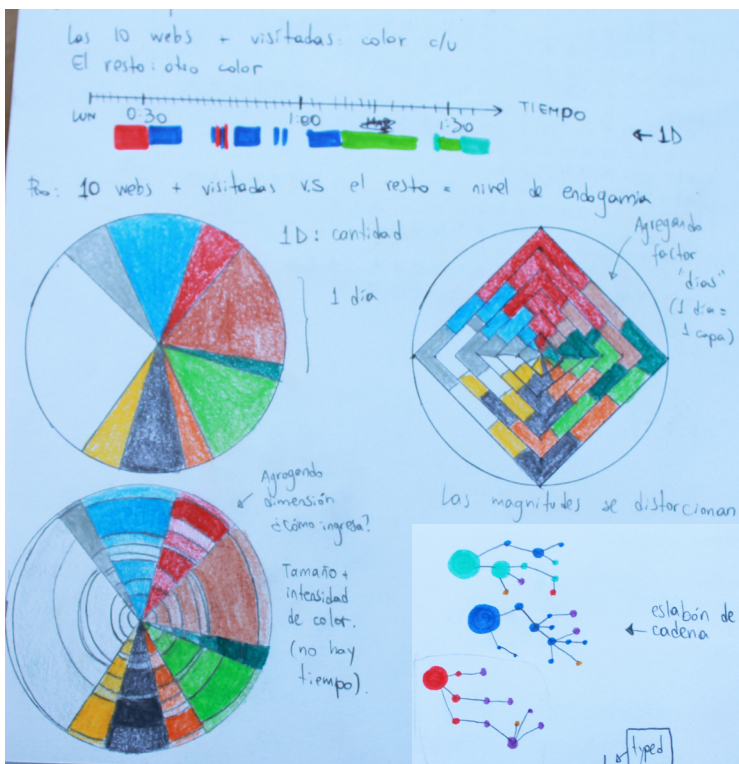 Las 10 webs + visitadas: color c/u
El resto: otro color
LUN
0:30
1:00
1:30
TIEMPO
← 1D
10 webs + visitadas v.s el resto = nivel de endogamia
1D: cantidad
1 día
Agregando
factor
"días"
(1 día =
1 capa)
Las magnitudes se distorcionan
Agregando
dimensión
¿Cómo ingresa?
Tamaño +
intensidad
de color.
(no hay
tiempo).
eslabón de
← cadena
typed